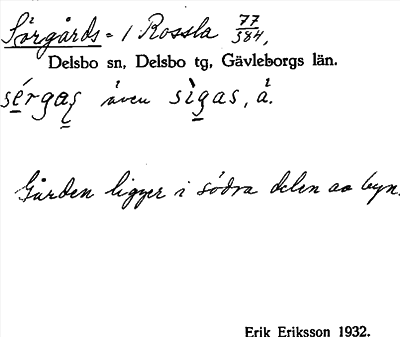 Sörgårds = i Rossla 77/584,
Delsbo sn, Delsbo tg, Gävleborgs län.
sérgas̱ även sìgas, å.
Gården ligger i södra delen av byn.
Erik Eriksson 1932.